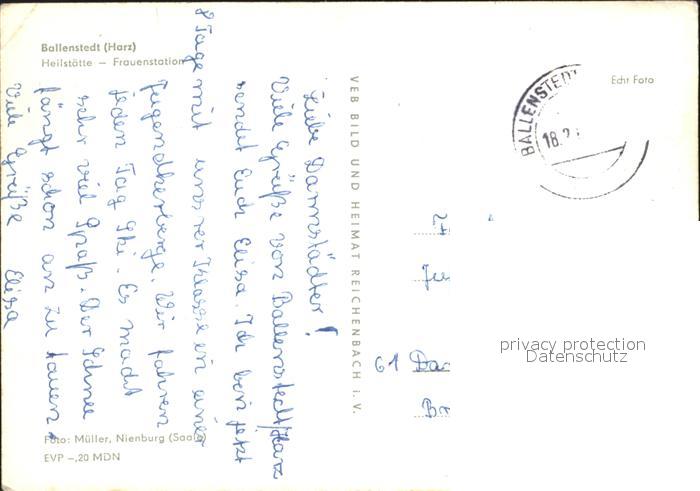 Ballenstedt (Harz)
Heilstätte – Frauenstation
Liebe Darmstädter!
Viele Grüße von Ballenstedt/Harz
sendet Euch Elisa. Ich bin jetzt
8 Tage mit unsrer Klasse in einer
Jugendherberge. Wir fahren
jeden Tag Ski. Es macht
sehr viel Spaß. Der Schnee
fängt schon an zu tauen.
Viele Grüße Elisa
Foto: Müller, Nienburg (Saale)
EVP –,20 MDN
VEB BILD UND HEIMAT REICHENBACH i. V.
Echt Foto
BALLENSTEDT
18.2
61 Dar
privacy protection
Datenschutz